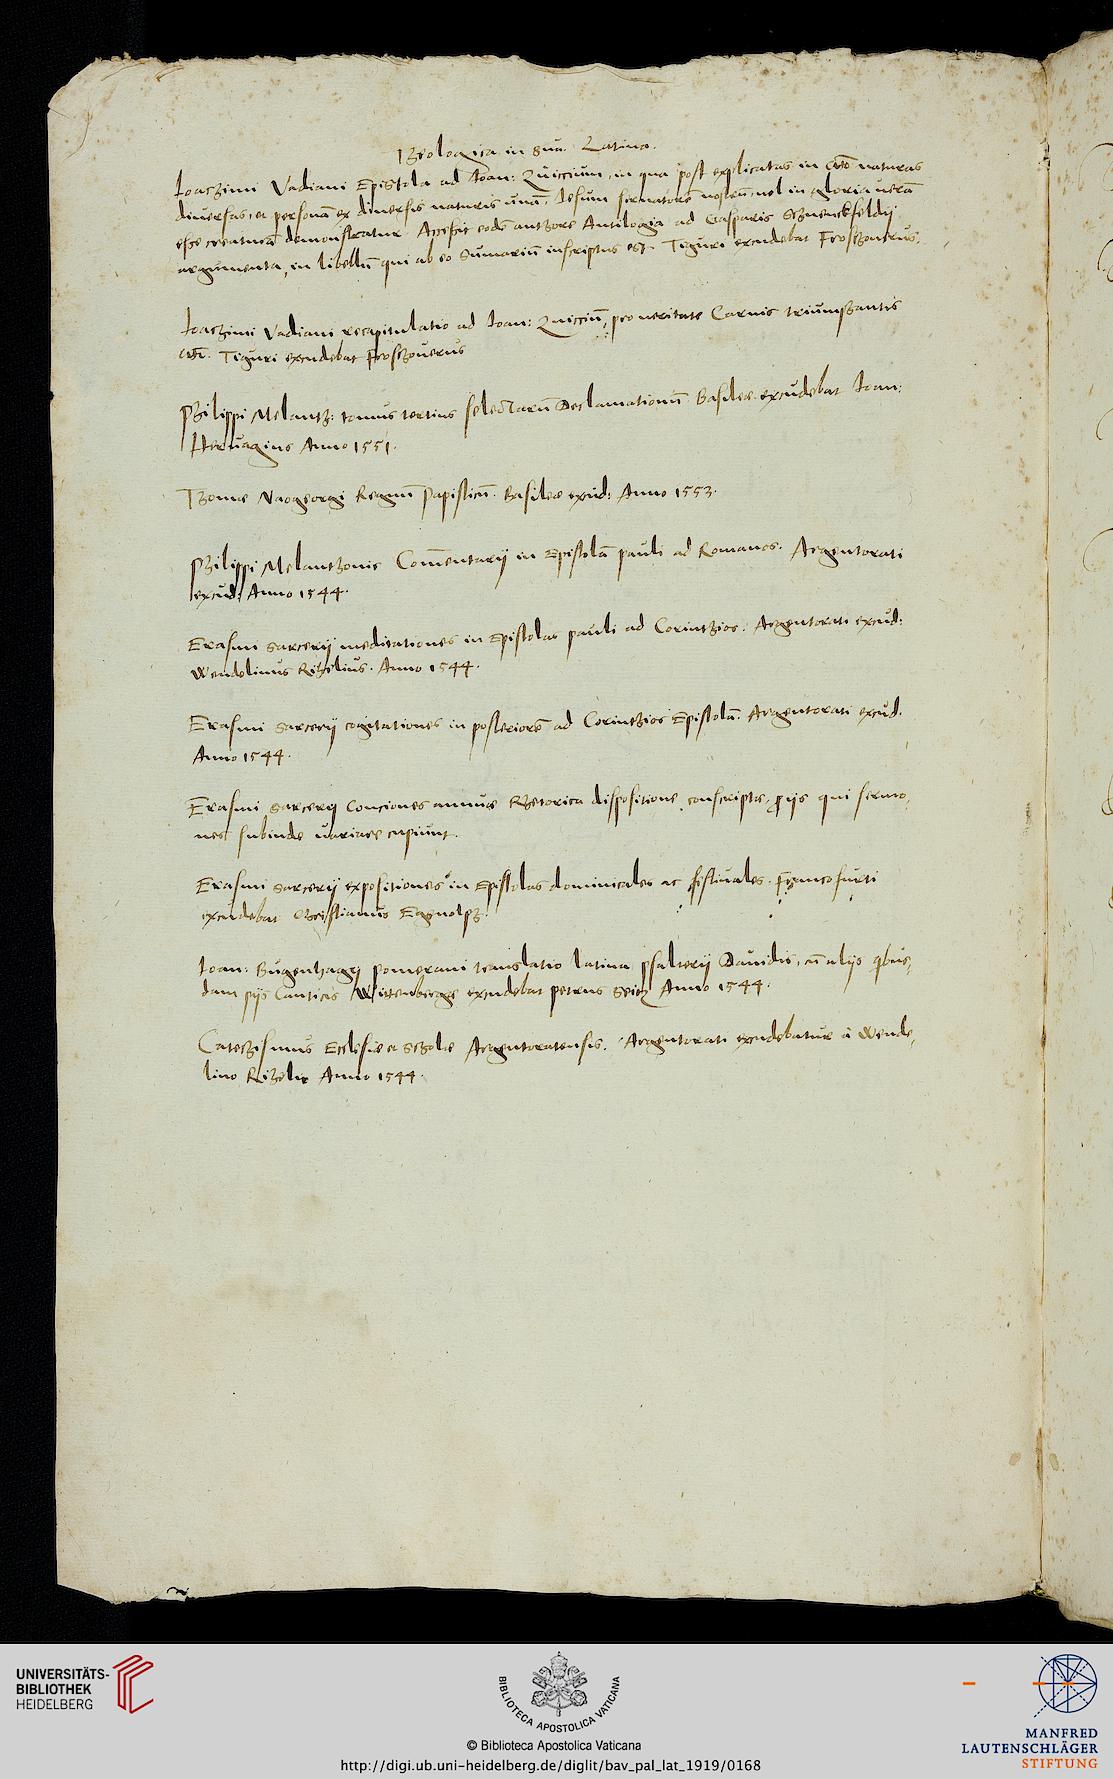 Theologica in 8ua. Latina.
Ioachimi Vadiani Epistola ad Ioan: Zuiccium, in qua post explicatas in Christo naturas
diuersas, et personā ex diuersis naturis unā, Iesum seruatorē nostrū, uel in gloria uerā
esse creaturā demonstratur. Accessit eodē authore Antilogia ad Gasparis Schuenckfeldij
argumenta, in libellū qui ab eo Sumariū inscriptus est. Tiguri excudebat Froschouerus.
Ioachimi Vadiani recapitulatio ad Ioan: Zuicciū, pro ueritate Carnis triumphantis
Tiguri excudebat Froschouerus
Philippi Melanth: tomus tertius selectarū Declamationū. Basileae excudebat Ioan:
Heruagius Anno 1551.
Thomae Naogeorgi Regnū Papisticū. Basileae excud: Anno 1553.
Philippi Melanthonis Com̄entarij in Epistolā pauli ad Romanos. Argentorati
excud: Anno 1544.
Erasmi Sarcerij meditationes in Epistolas pauli ad Corinthios. Argentorati excud:
Wendelinus Rihelius. Anno 1544.
Erasmi Sarcerij cogitationes in posteriorē ad Corinthios Epistolā. Argentorati excud.
Anno 1544.
Erasmi Sarcerij Conciones annuae Rhetorica dispositione conscriptae, p ijs qui sermo,
nes subinde uariare cupiunt.
Erasmi Sarcerij expositiones in Epistolas dominicales ac festiuales. Francofurti
excudebat Christianus Egnolph.
Ioan: Bugenhagij pomerani translatio latina psalterij Dauidis, cū alijs qbus,
dam pijs Canticis Wittenbergae excudebat petrus Seitz Anno 1544.
Catechismus Ecclesiae et Scholae Argentoratensis. Argentorati excudebatur à Wende,
lino Rihelio Anno 1544.
UNIVERSITÄTS-
BIBLIOTHEK
HEIDELBERG
BIBLIOTECA APOSTOLICA VATICANA
© Biblioteca Apostolica Vaticana
http://digi.ub.uni-heidelberg.de/diglit/bav_pal_lat_1919/0168
MANFRED
LAUTENSCHLÄGER
STIFTUNG